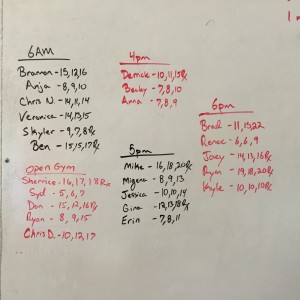 6AM
Brannon - 15,12,16
Anja - 8,9,10
Chris N. - 14,11,14
Veronica - 14,13,15
Skyler - 9,7,8Rx
Ben - 15,15,17Rx
Open Gym
Sherrice - 16,17,18Rx
Syd - 5,6,7
Dan - 15,12,16Rx
Ryan - 8,9,15
Chris D. - 10,12,17
4pm
Derrick - 10,11,15Rx
Becky - 7,8,10
Anna - 7,8,9
5pm
Mike - 16,18,20Rx
Migena - 8,9,13
Jessica - 10,10,14
Gina - 12,13,18Rx
Erin - 7,8,11
6pm
Brad - 11,13,22
Renee - 6,6,9
Joey - 14,13,16Rx
Ryan - 19,18,20Rx
Kyle - 10,10,10Rx